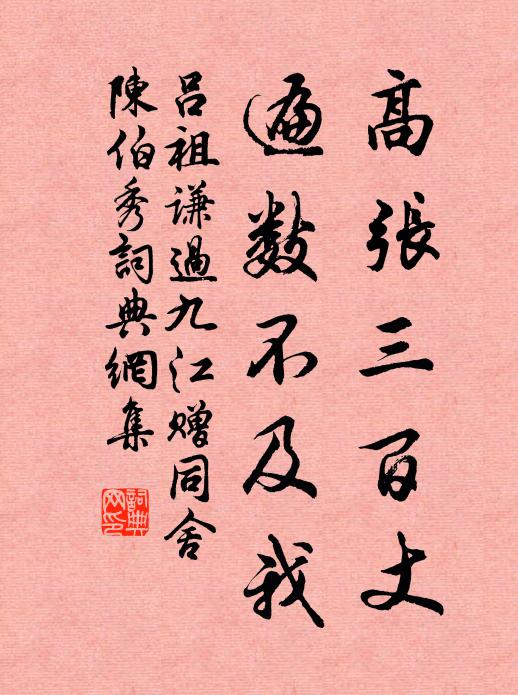 高張三百丈
遍數不及我
呂祖謙過九江赠同舍
陳伯秀詞典網集
詞典网印